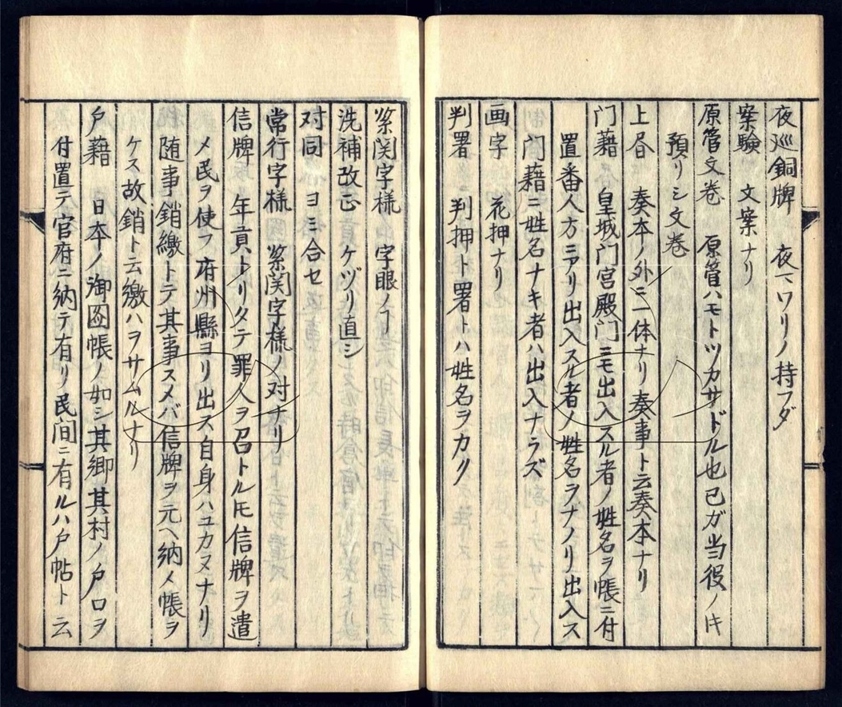 夜巡銅牌　夜マワリノ持フダ
案験　文案ナリ
原管文巻　原管ハモトツカサドル也已ガ当役ノ片
預リシ文巻
上呇　奏本ノ外ニ一体ナリ奏事ト云奏本ナリ
門藉　皇城門宮殿門ニモ出入スル者ノ姓名ヲ帳ニ付
置番人方ニアリ出入スル者ノ姓名ヲナノリ出入ス
門藉ニ姓名ナキ者ハ出入ナラズ
画字　花押ナリ
判署　判押ト署トハ姓名ヲカク
桼関字様　字眼ノヿ
洗補改正　ケヅリ直シ
対同　ヨミ合セ
常行字様　桼関字様ノ対ナリ
信牌　年貢トリタテ罪人ヲ召トル𪜈信牌ヲ遣
メ民ヲ使フ府州縣ヨリ出ス自身ハユカヌナリ
随事銷繳トテ其事スメバ信牌ヲ元ヘ納メ帳ヲ
ケス故銷ト云繳ハヲサムルナリ
戸藉　日本ノ御圖帳ノ如シ其郷其村ノ戸口ヲ
付置テ官府ニ納テ有リ民間ニ有ルハ戸帖ト云